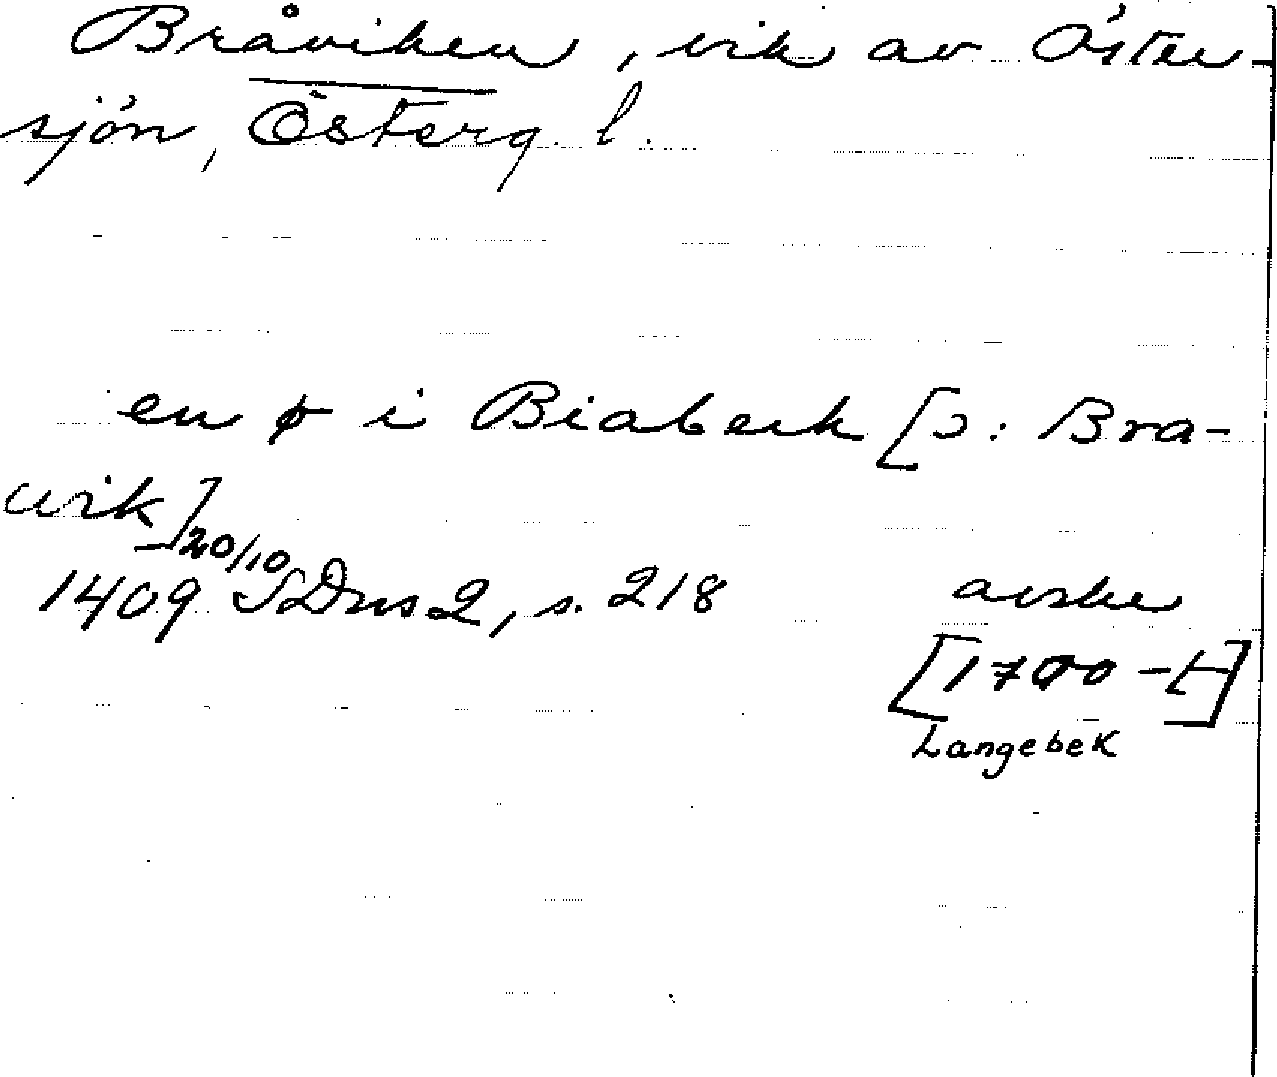 Bråviken, vik av Öster-
sjön, Österg. l.
en ø i Biabeik [ɔ: Bra-
wik]
1409 20/10 SDns 2, s. 218 avskr
[1700-t]
Langebek